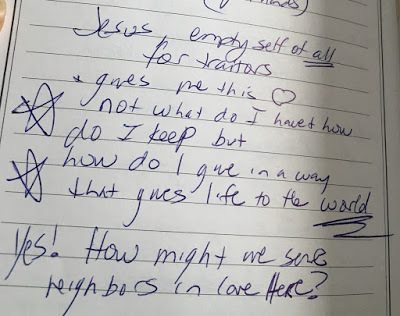 Jesus, empty self of all
for traitors
* gives me this ♡
☆ not what do I have & how
do I keep but
☆ how do I give in a way
that gives life to the world
Yes! How might we serve
neighbors in love Here?